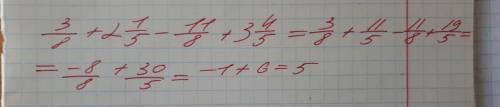 3/8 + 2 1/5 - 11/8 + 3 4/5 = 3/8 + 11/5 - 11/8 + 19/5 =
= -8/8 + 30/5 = -1 + 6 = 5